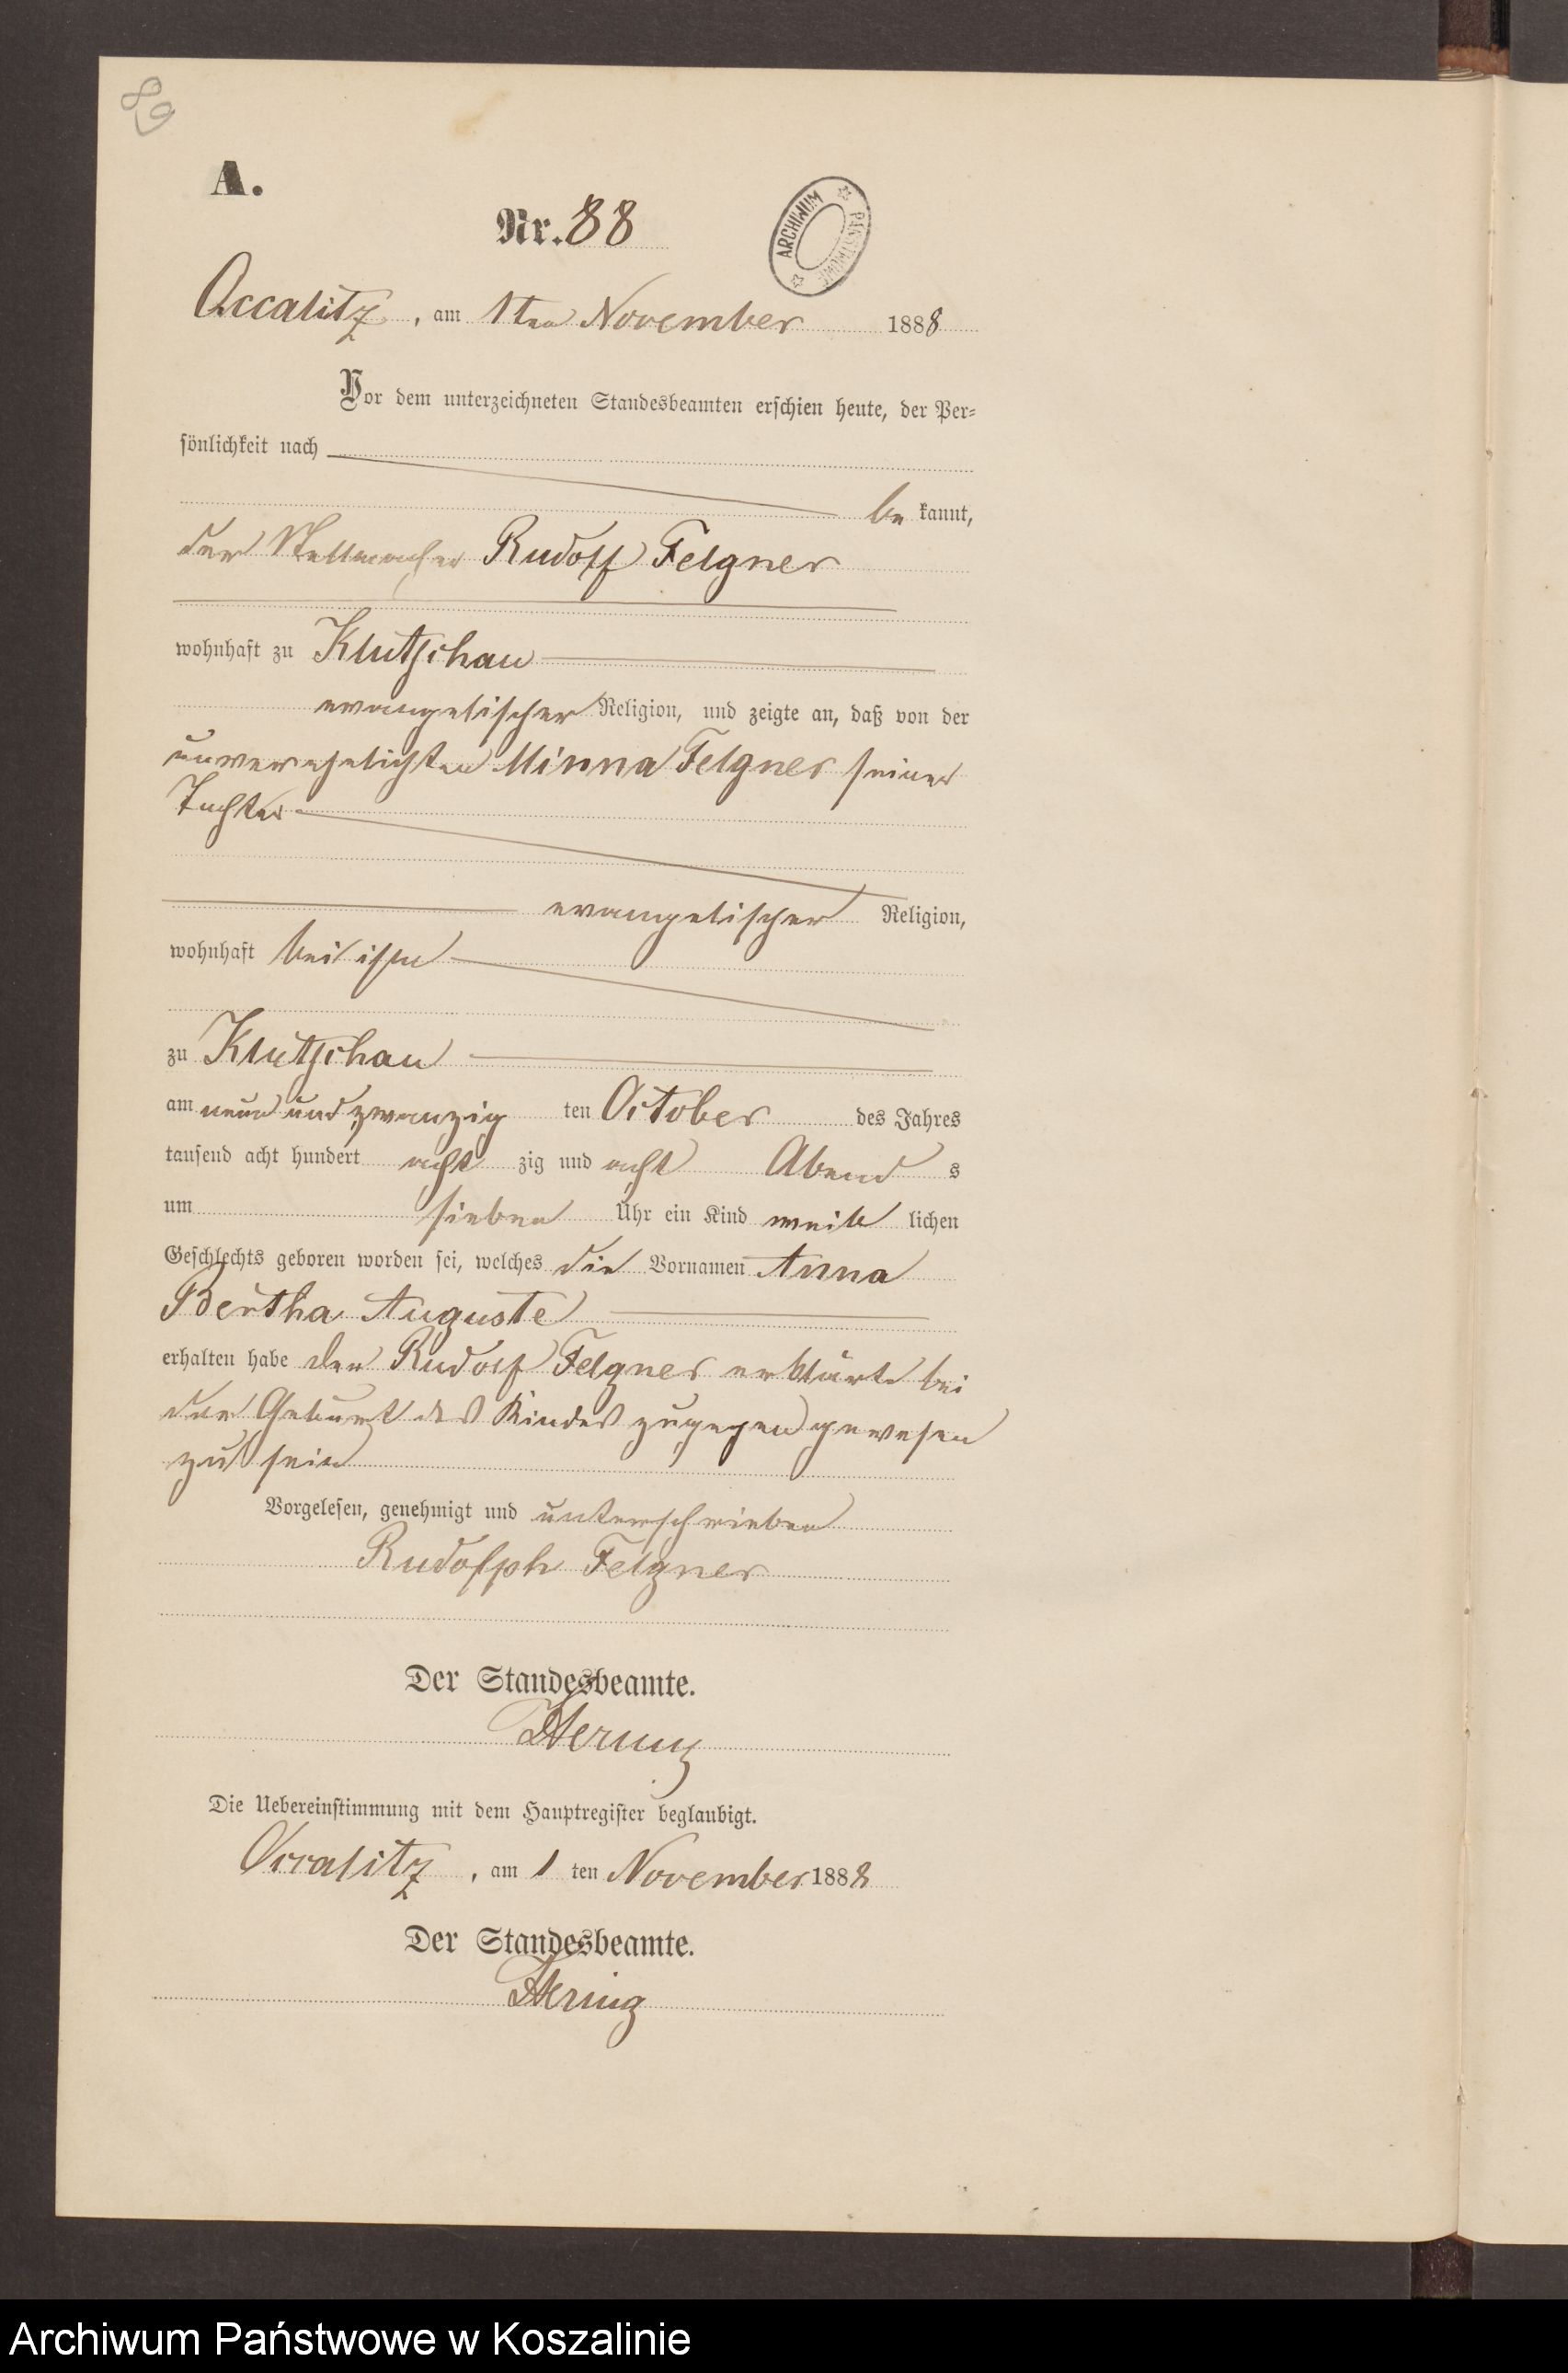 89
A.
Nr. 88
ARCHIWUM PAŃSTWOWE
Occalitz, am 1ten November 1888
Vor dem unterzeichneten Standesbeamten erschien heute, der Per-
sönlichkeit nach
be kannt,
der Stellmacher Rudolf Felgner
wohnhaft zu Klutschau
evangelischer Religion, und zeigte an, daß von der
unverehelichten Minna Felgner seiner
Tochter
evangelischer Religion,
wohnhaft bei ihm
zu Klutschau
am neun und zwanzig ten October des Jahres
tausend acht hundert acht zig und acht Abend s
um sieben Uhr ein Kind weib lichen
Geschlechts geboren worden sei, welches die Vornamen Anna
Bertha Auguste
erhalten habe der Rudolf Felgner erklärte bei
der Geburt des Kindes zugegen gewesen
zu sein
Vorgelesen, genehmigt und unterschrieben
Rudolph Felgner
Der Standesbeamte.
Hering
Die Uebereinstimmung mit dem Hauptregister beglaubigt.
Occalitz, am 1 ten November 1888
Der Standesbeamte.
Hering
Archiwum Państwowe w Koszalinie